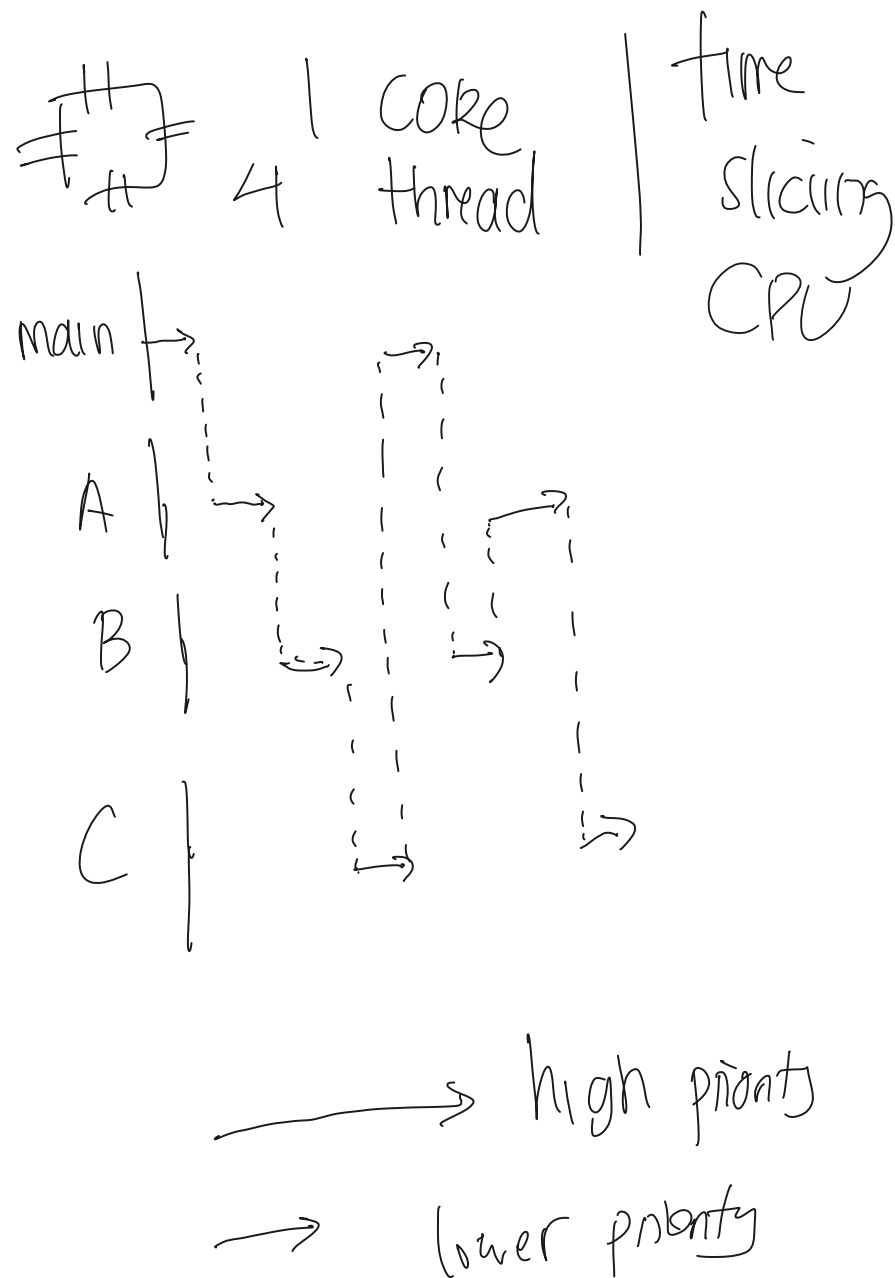 1 core
4 thread
time
slicing
CPU
main
A
B
C
high priority
lower priority